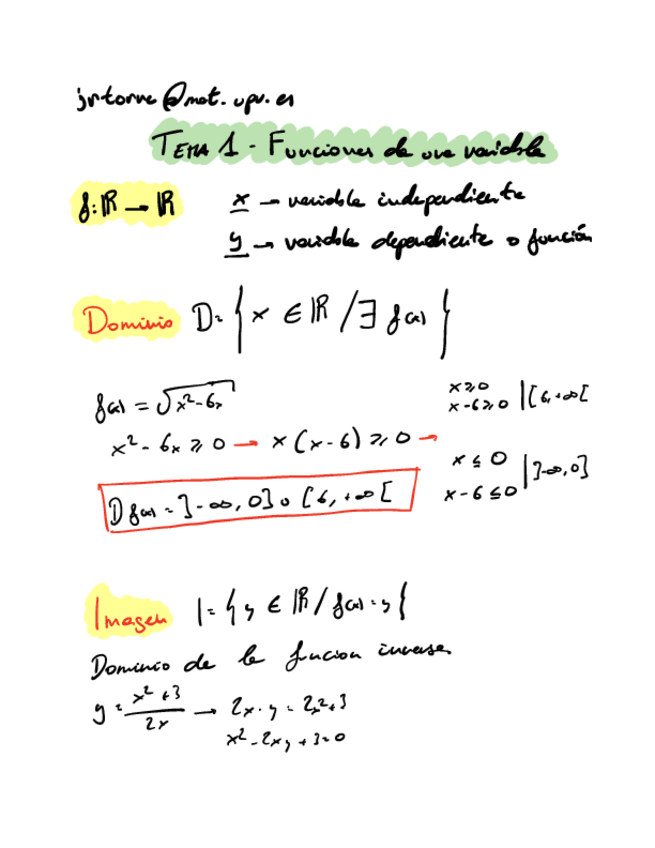 jrtorre@mat.upv.es
TEMA 1 - Funciones de una variable
f: ℝ → ℝ
x → variable independiente
y → variable dependiente o función
Dominio D = { x ∈ ℝ / ∃ f(x) }
f(x) = √(x² - 6x)
x ≥ 0
x - 6 ≥ 0 | [6, +∞[
x² - 6x ≥ 0 → x(x - 6) ≥ 0 →
x ≤ 0
x - 6 ≤ 0 | ]-∞, 0]
D f(x) = ]-∞, 0] ∪ [6, +∞[
Imagen I = { y ∈ ℝ / f(x) = y }
Dominio de la funcion inversa
y = (x² + 3)/2x → 2x · y = 2x² + 3
x² - 2xy + 3 = 0